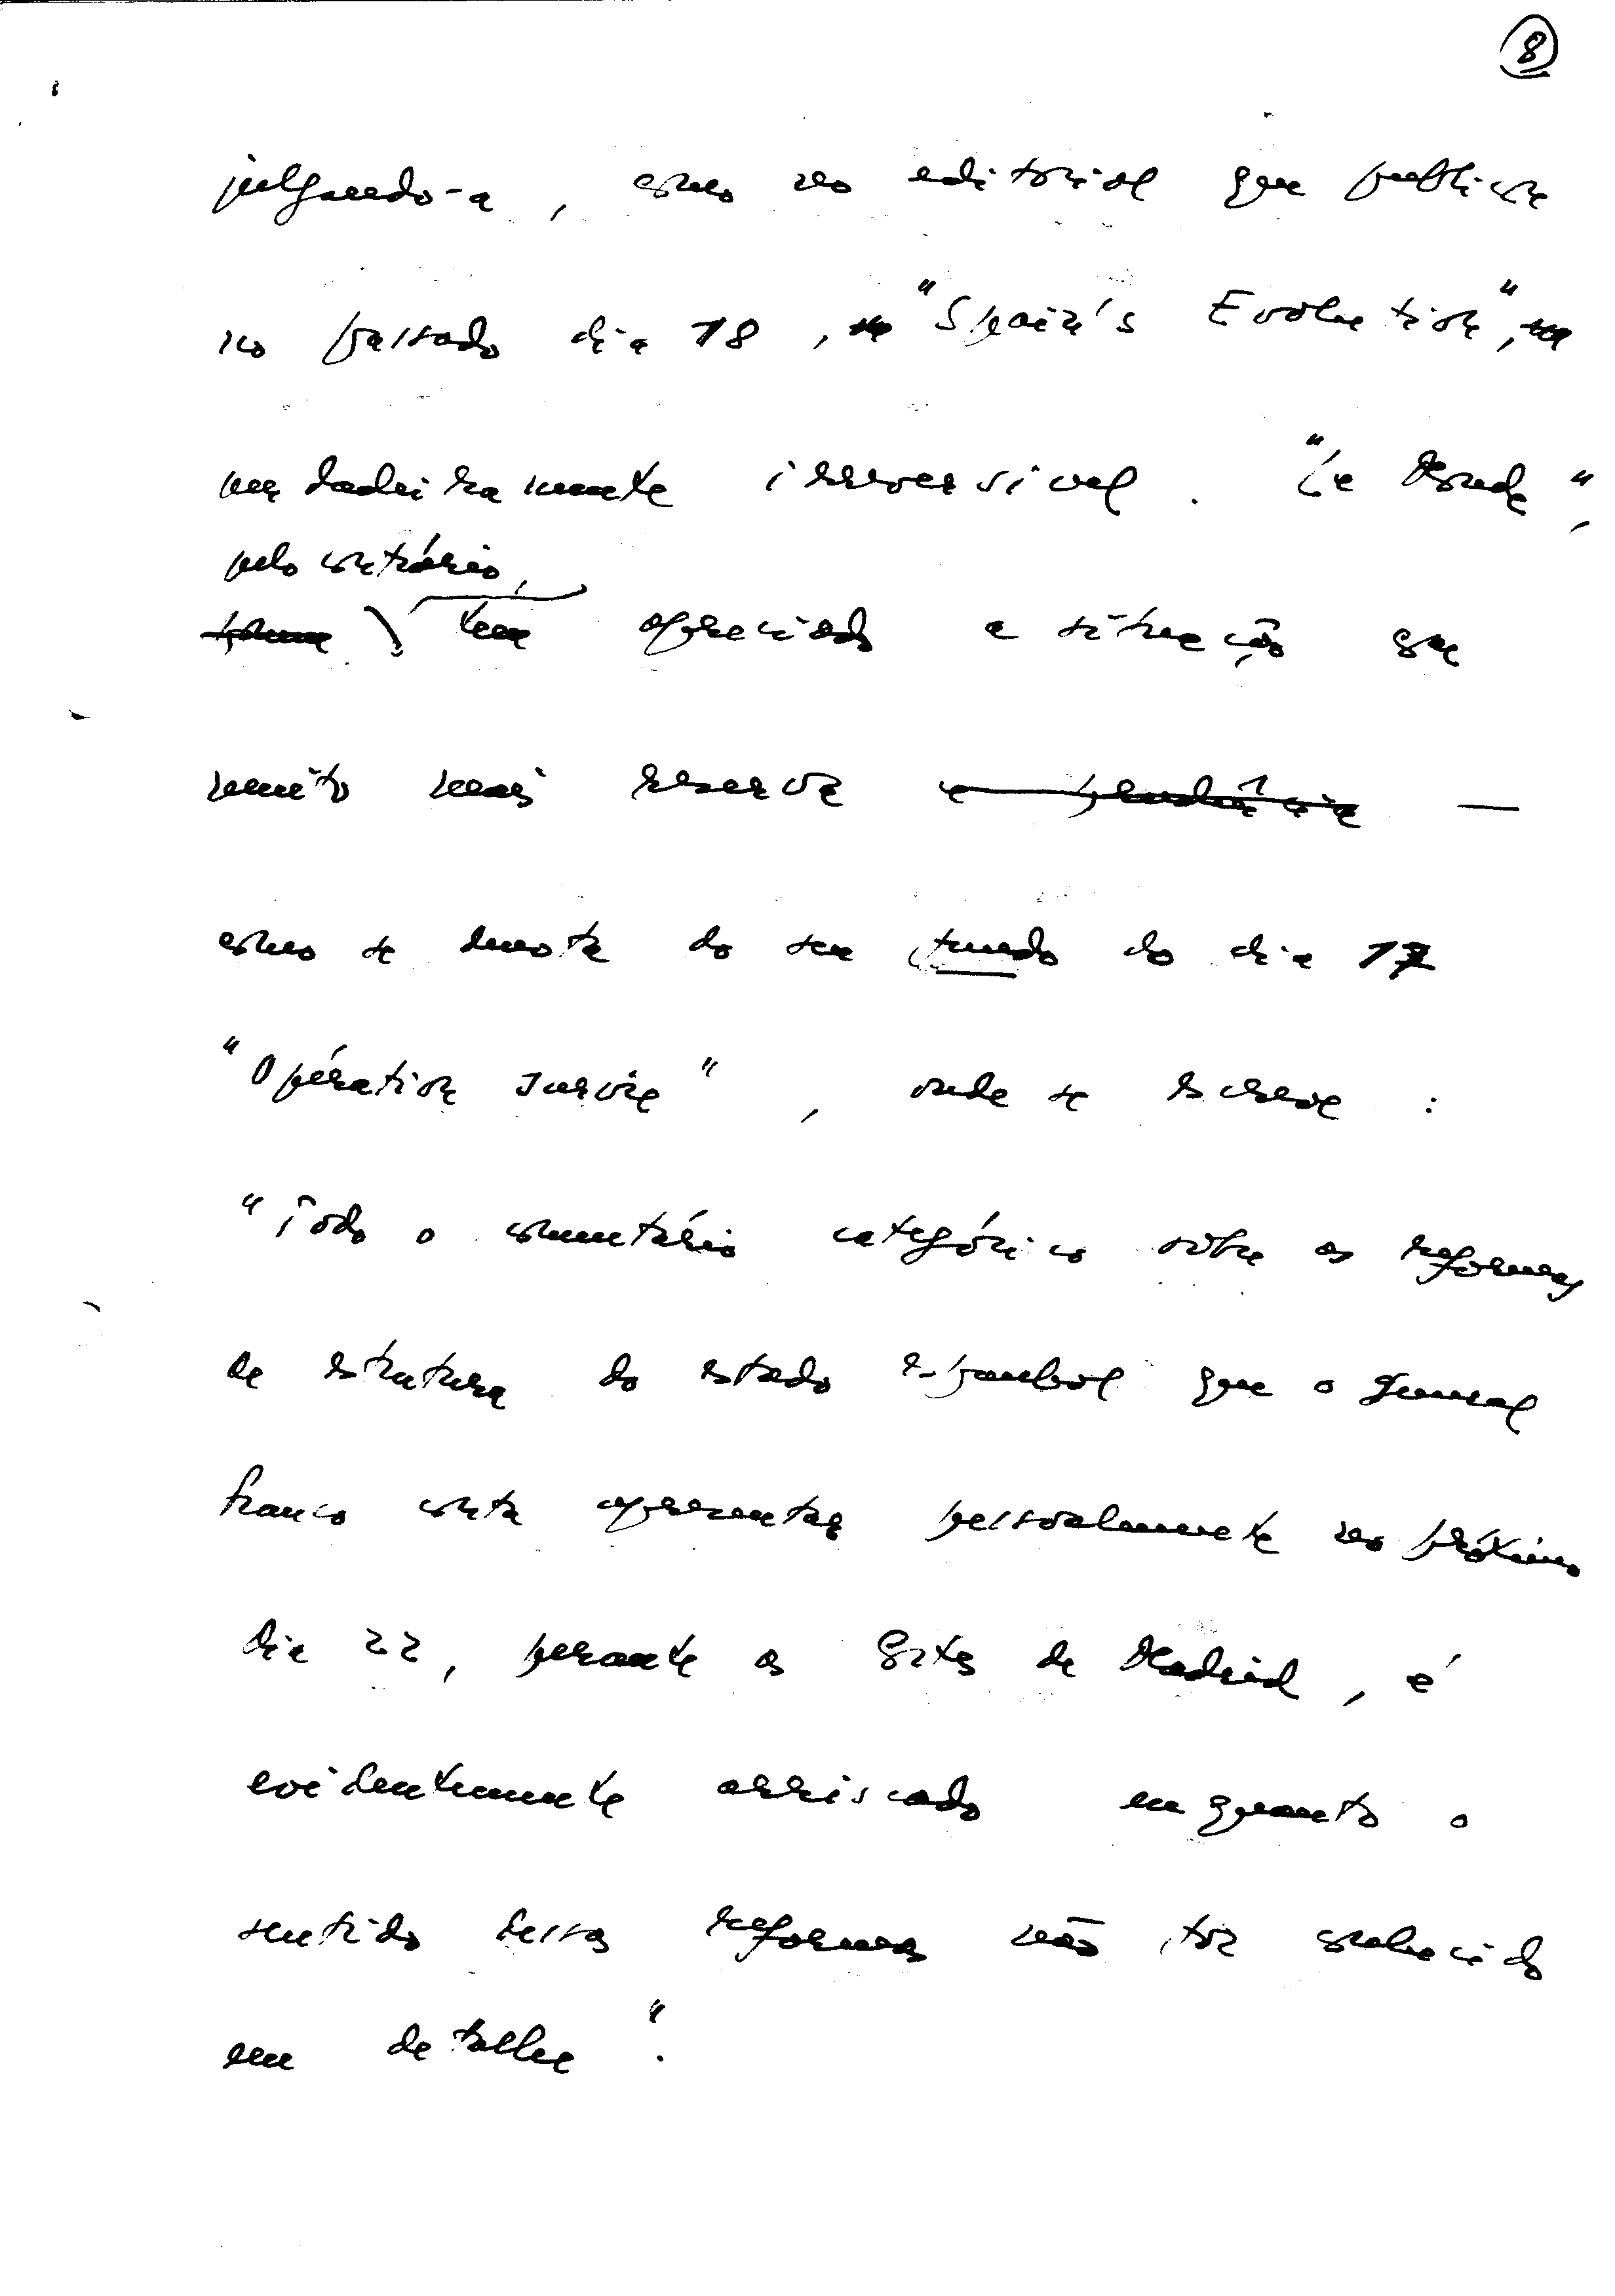 8
julgando-a, como no editorial que publicou
no passado dia 18, "Spain's Evolution",
verdadeiramente irreversível. "Le Monde",
pelo contrário,
tem apreciado a situação com
muito mais reserva e prudência —
como se denota do seu fundo do dia 17
"Opération survie", onde se escreve:
"Todo o comentário categórico sôbre as reformas
de estrutura do estado espanhol que o General
Franco conta apresentar pessoalmente no próximo
dia 22, perante as Côrtes de Madrid, é
evidentemente arriscado enquanto o
sentido dessas reformas não fôr conhecido
em detalhe".